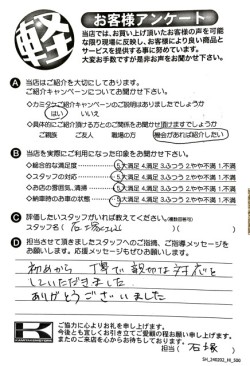 軽
お客様アンケート
当店では、お買い上げ頂いたお客様の声を可能
な限り現場に反映し、お客様により良い商品と
サービスを提供する事に努めています。
大変お手数ですが是非お声をお聞かせ下さい。
A 当店はご紹介を大切にしております。
ご紹介キャンペーンについてお聞かせ下さい。
◇カミタケご紹介キャンペーンのご説明はありましたでしょうか
はい いいえ
◇具体的にご紹介頂ける方とのご関係をお聞かせ頂けますでしょうか
ご親族 ご友人 職場の方 機会があれば紹介したい
B 当店を実際にご利用になった印象をお聞かせ下さい。
◇総合的な満足度 5大満足 4満足 3ふつう 2やや不満 1不満
◇スタッフの対応 5大満足 4満足 3ふつう 2やや不満 1不満
◇お店の雰囲気、清掃 5大満足 4満足 3ふつう 2やや不満 1不満
◇納車時のお車の状態 5大満足 4満足 3ふつう 2やや不満 1不満
C 評価したいスタッフがいれば教えてください。(複数回答可)
スタッフ名( 石塚
D 担当させて頂きましたスタッフへのご指摘、ご指導メッセージを
お願いします。応援メッセージもぜひお願いします。
初めから丁寧で親切な対応を
していただきました。
ありがとうございました
K
ご協力に心よりお礼を申し上げます。
今後とも宜しくお引立てご愛顧の程お願い申し上げます。
またのご来店を心からお待ちしております。
担当( 石塚 )